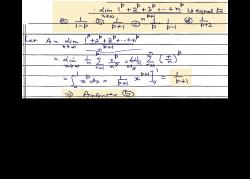 lim n→∞ 1^p+2^p+3^p+...+n^p / n^(p+1) is equal to
ⓐ 1/(1-p) ⓑ 1/(p+1) ⓒ 1/p - 1/(p-1) ⓓ 1/(p+2)
Let A = lim n→∞ 1^p+2^p+3^p+...+n^p / n^(p+1)
= lim n→∞ 1/n Σ r^p/n^p = lim n→∞ 1/n Σ (r/n)^p
= ∫₀¹ x^p dx = 1/(p+1) x^(p+1) ]₀¹ = 1/(p+1)
⇒ Answer ⓑ